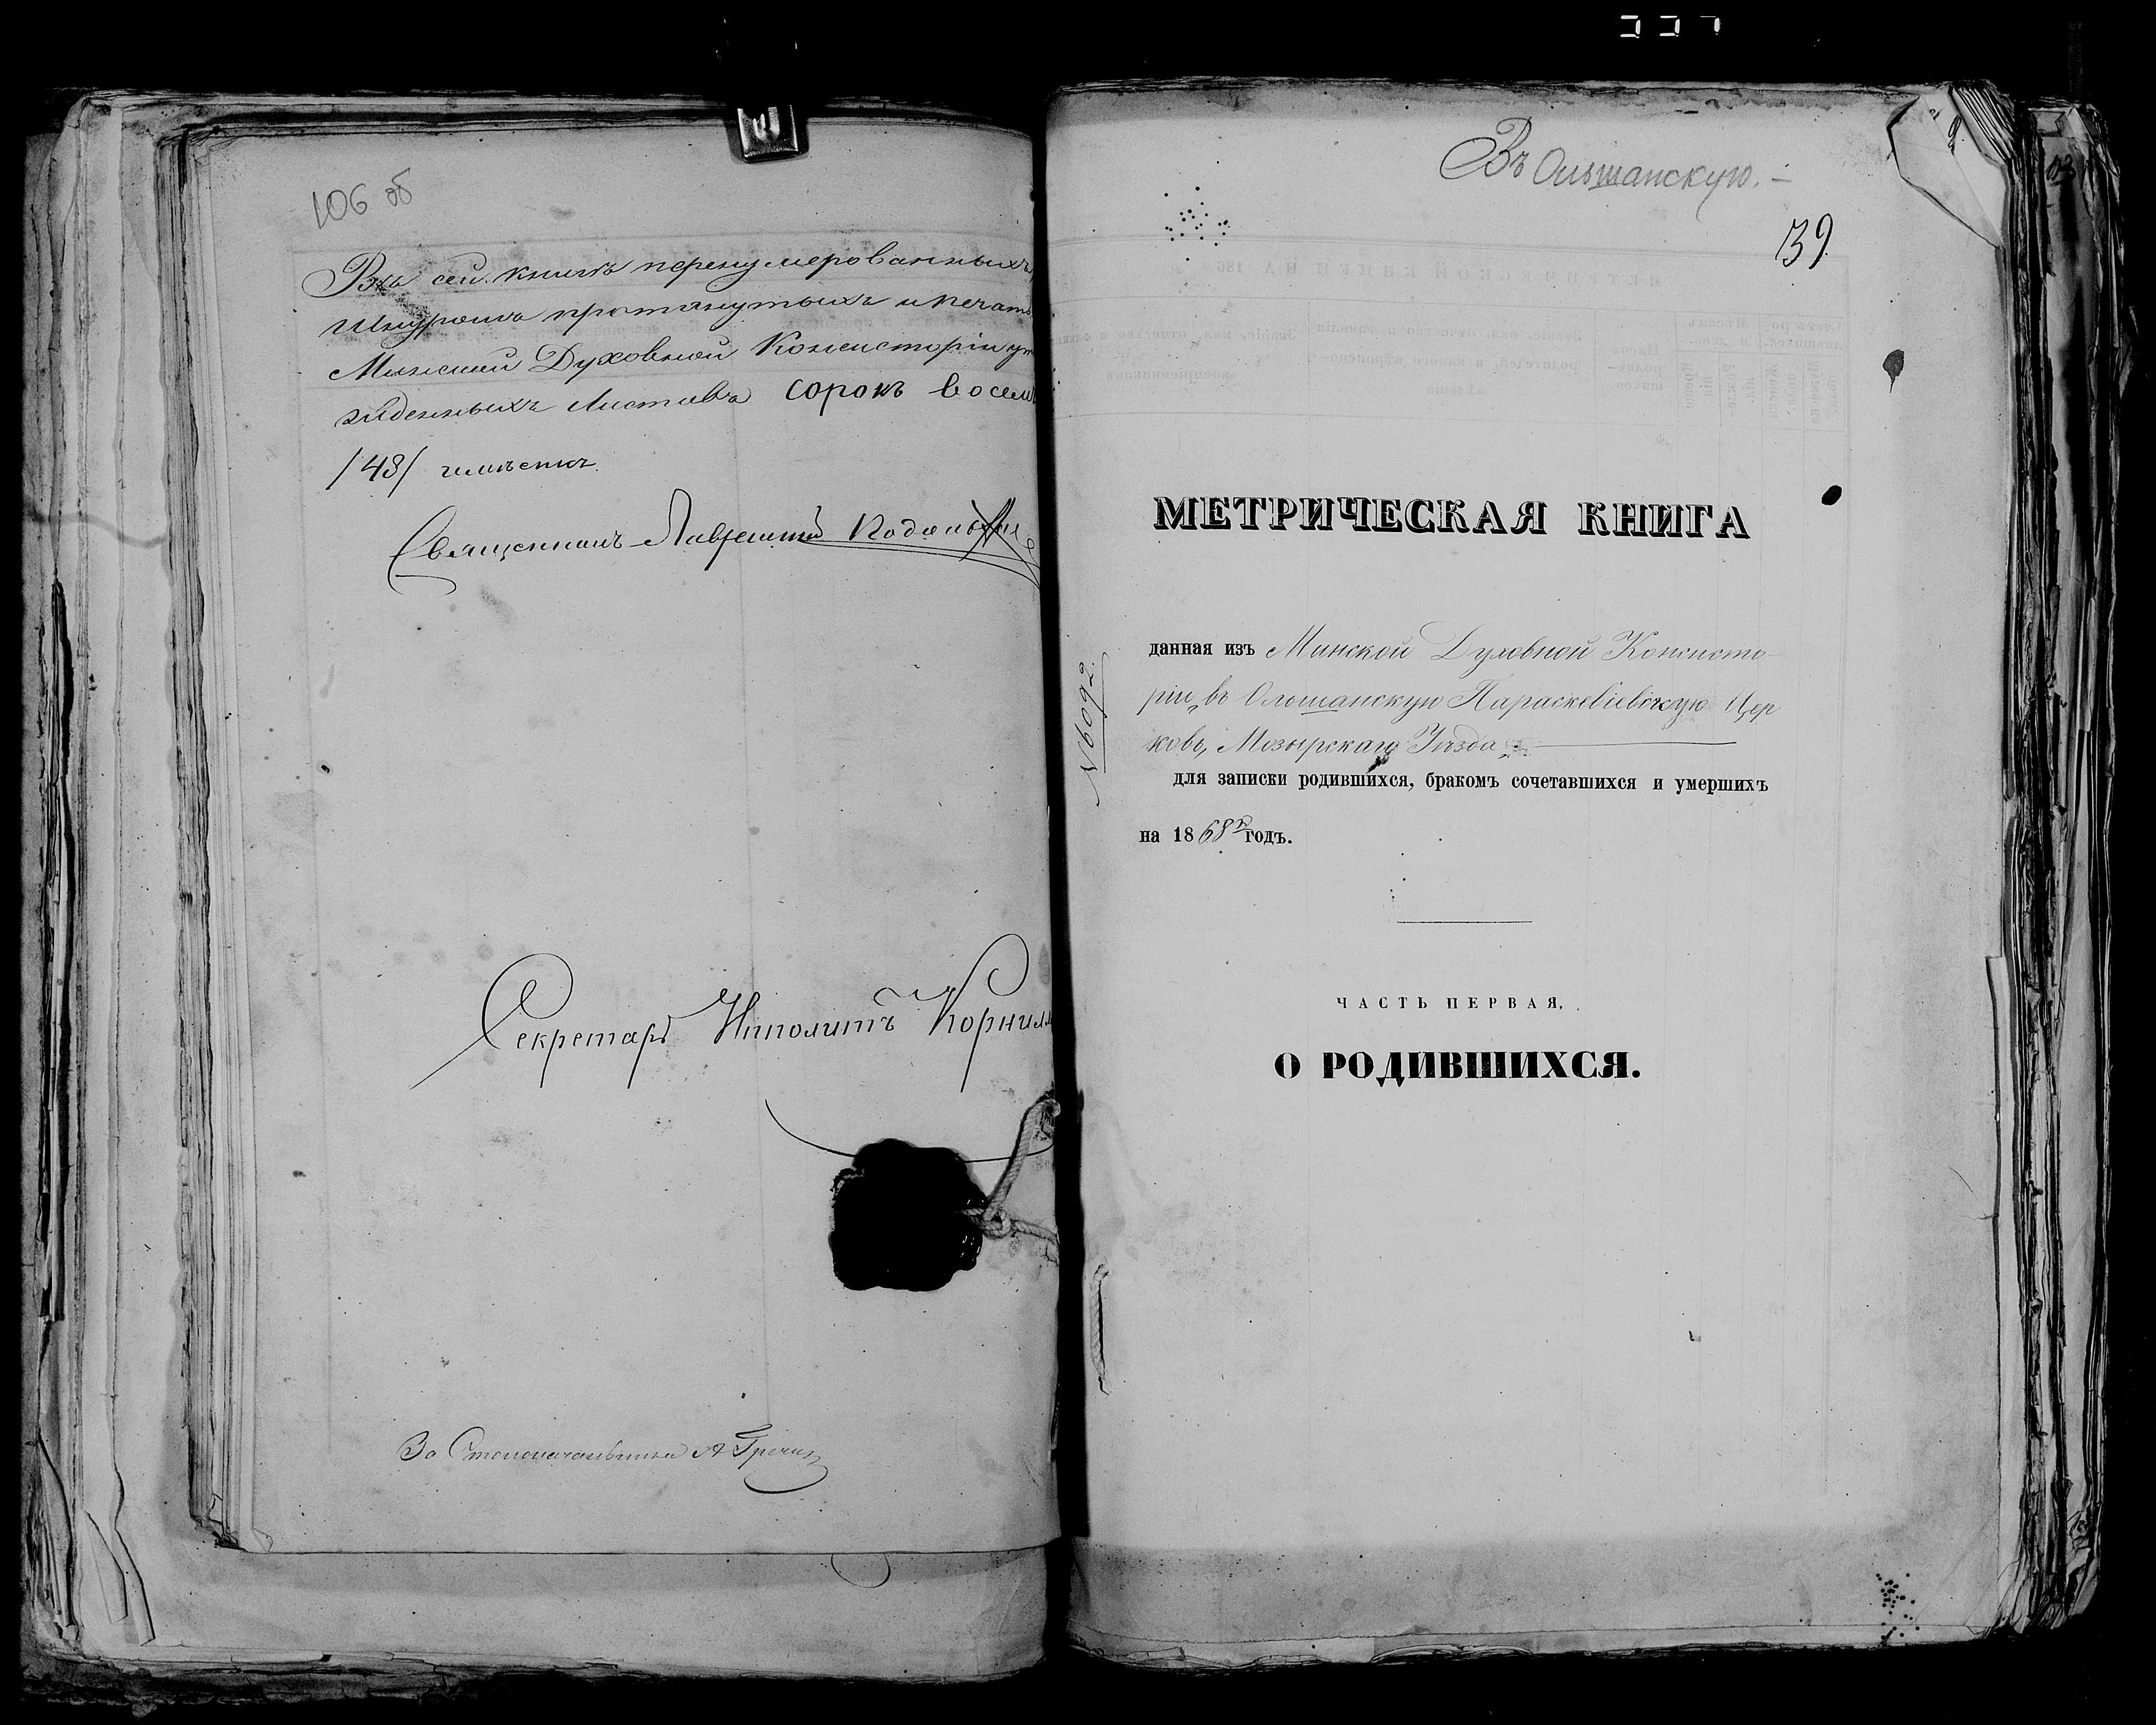 106 об
Въ сей книгѣ перенумерованныхъ
шнуромъ протянутыхъ и печатью
Минской Духовной Консисторіи ут
жденныхъ листовъ сорокъ восемь
/48/ числомъ.
Священникъ Лаврентій
Секретарь Ипполитъ Корнил
За Столоначальника А
Въ Ольшанскую. —
139.
МЕТРИЧЕСКАЯ КНИГА
№ 6092.
данная изъ Минской Духовной Консисто-
ріи, въ Ольшанскую Параскевіевскую Цер
ковь, Мозырскаго Уѣзда
для записки родившихся, бракомъ сочетавшихся и умершихъ
на 1868й годъ.
ЧАСТЬ ПЕРВАЯ,
О РОДИВШИХСЯ.